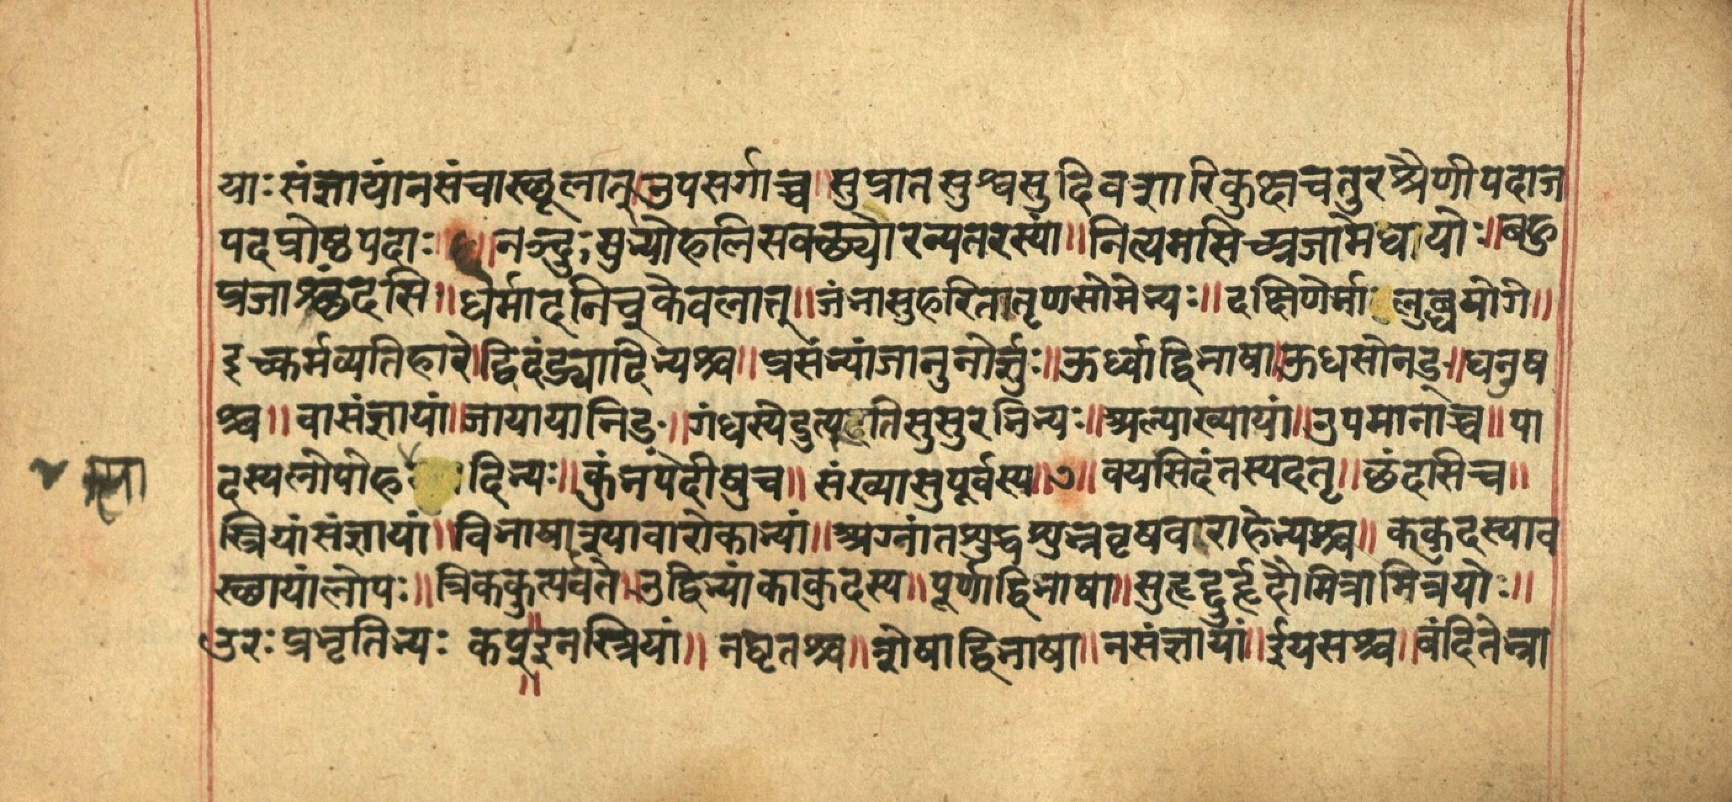 याः संज्ञायांनसंचास्छूलात्॥उपसर्गाच्च॥सुप्रातसुश्वसुदिवशारिकुक्षचतुरश्रैणीपदाज
पदप्रोष्ठपदाः ॥ नञ्दुःसुभ्योहलिसक्थ्योरन्यतरस्यां॥नित्यमसिच्प्रजामेधयोः॥बहु
प्रजाश्छंदसि॥धर्मादनिच्केवलात्॥जंभासुहरिततृणसोमेभ्यः॥दक्षिणेर्मा लुब्धयोगे॥
इच्कर्मव्यतिहारे॥द्विदंड्यादिभ्यश्च॥प्रसंभ्यांजानुनोर्ज्ञुः॥ऊर्ध्वाद्विभाषा॥ऊधसोनङ्॥धनुष
श्च॥वासंज्ञायां॥जायायानिङ्॥गंधस्येदुत्पूतिसुसुरभिभ्यः॥अल्पाख्यायां॥उपमानाच्च॥पा
दस्यलोपोह दिभ्यः॥कुंभपदीषुच॥संख्यासुपूर्वस्य॥७॥वयसिदंतस्यदतृ॥छंदसिच॥
स्त्रियांसंज्ञायां॥विभाषाश्यावारोकाभ्यां॥अग्रांतशुद्धशुभ्रवृषवाराहेभ्यश्च॥ककुदस्याव
स्छायांलोपः॥त्रिककुत्पर्वते॥उद्विभ्यांकाकुदस्य॥पूर्णाद्विभाषा॥सुहृद्दुर्हृदौमित्रामित्रयोः॥
उरःप्रभृतिभ्यः कप्॥इनस्त्रियां॥नद्यृतश्च॥शेषाद्विभाषा॥नसंज्ञायां॥ईयसश्च॥वंदितेभ्रा